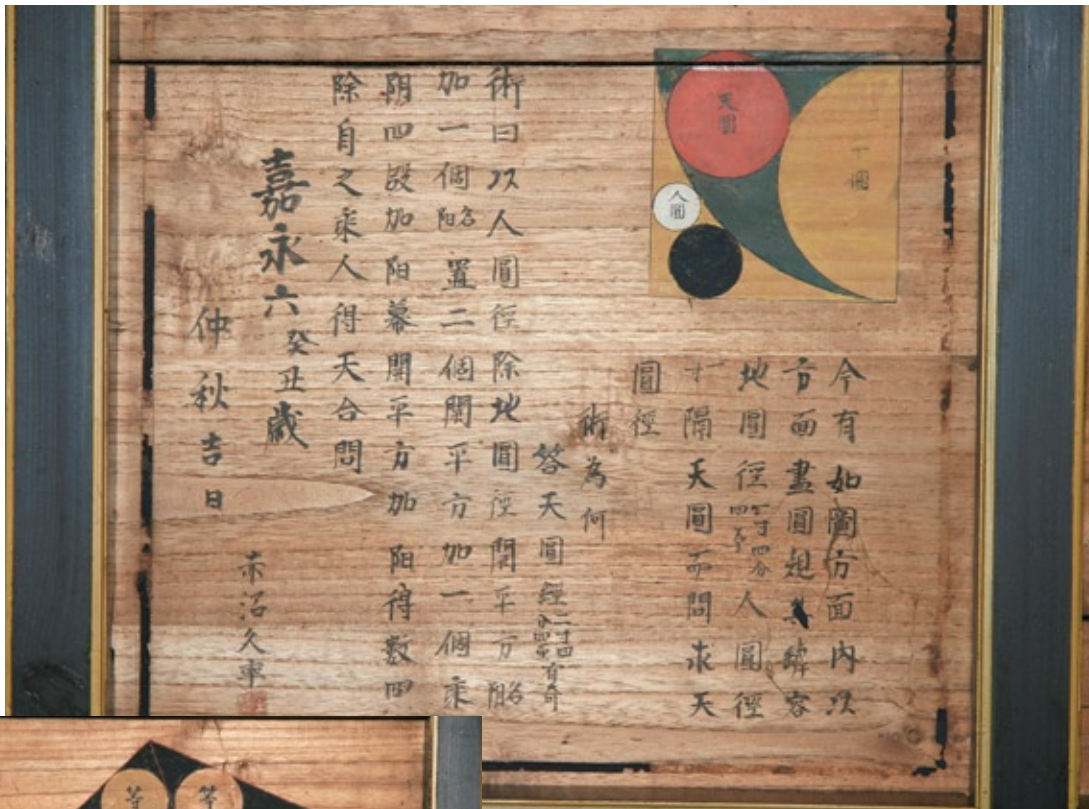 天圓
人圓
今有如圖方面内以
方面畫圓規其罅容
地圓径 人圓径
寸隔天圓而問求天
圓径
術為何
答天圓經二寸四 有奇
術曰以人圓径除地圓径開平方
加一個名陽置二個開平方加一個乗
四段加陽冪開平方加陽得数四
除自之乗人得天合問
嘉永六癸丑歳
仲秋吉日
赤沼久
等
等